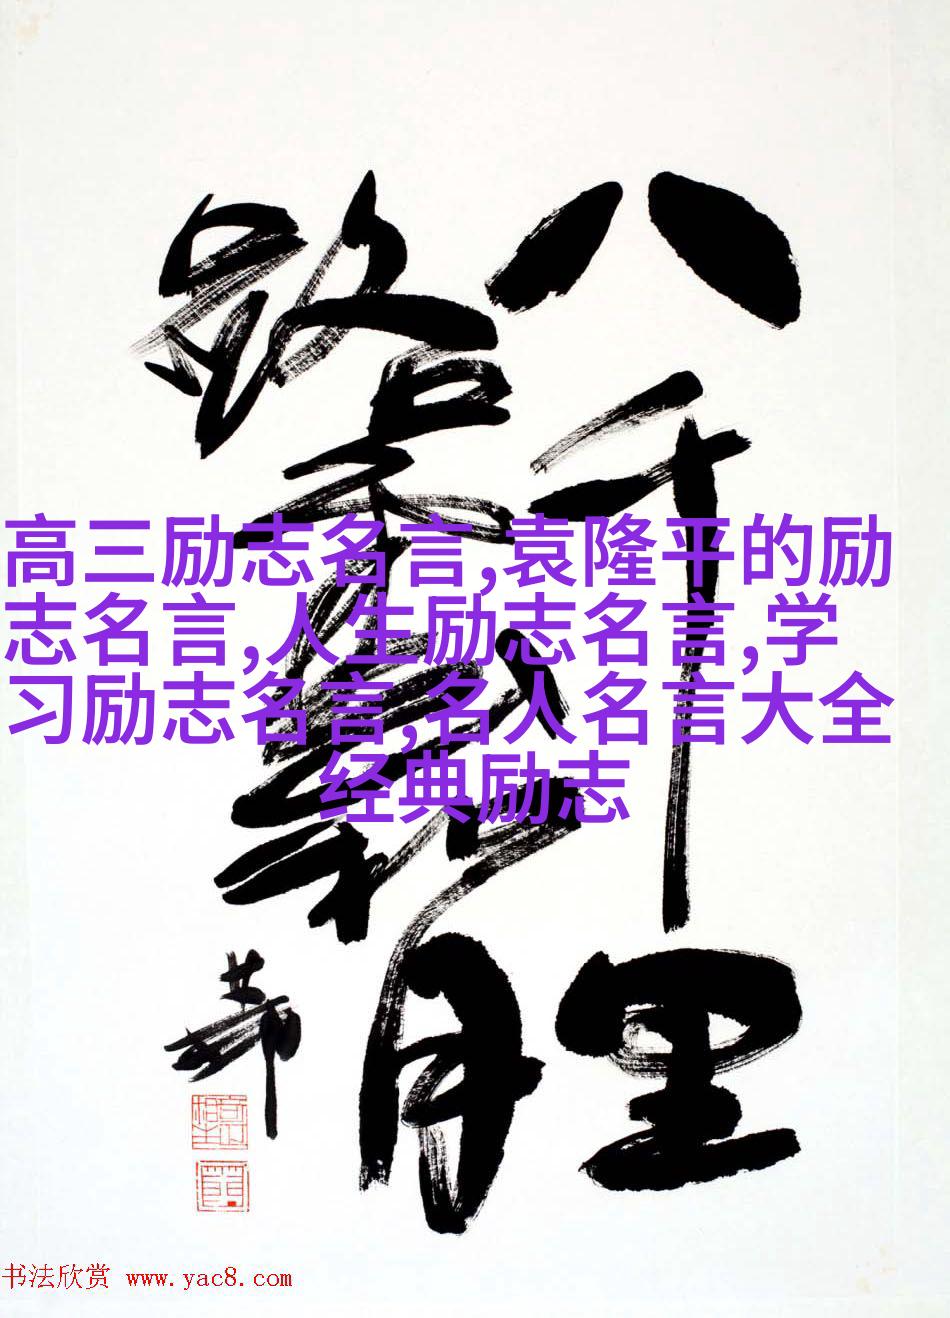 八千里
路云和月
高三励志名言,袁隆平的励
志名言,人生励志名言,学
习励志名言,名人名言大全
经典励志
书法欣赏 www.yac8.com